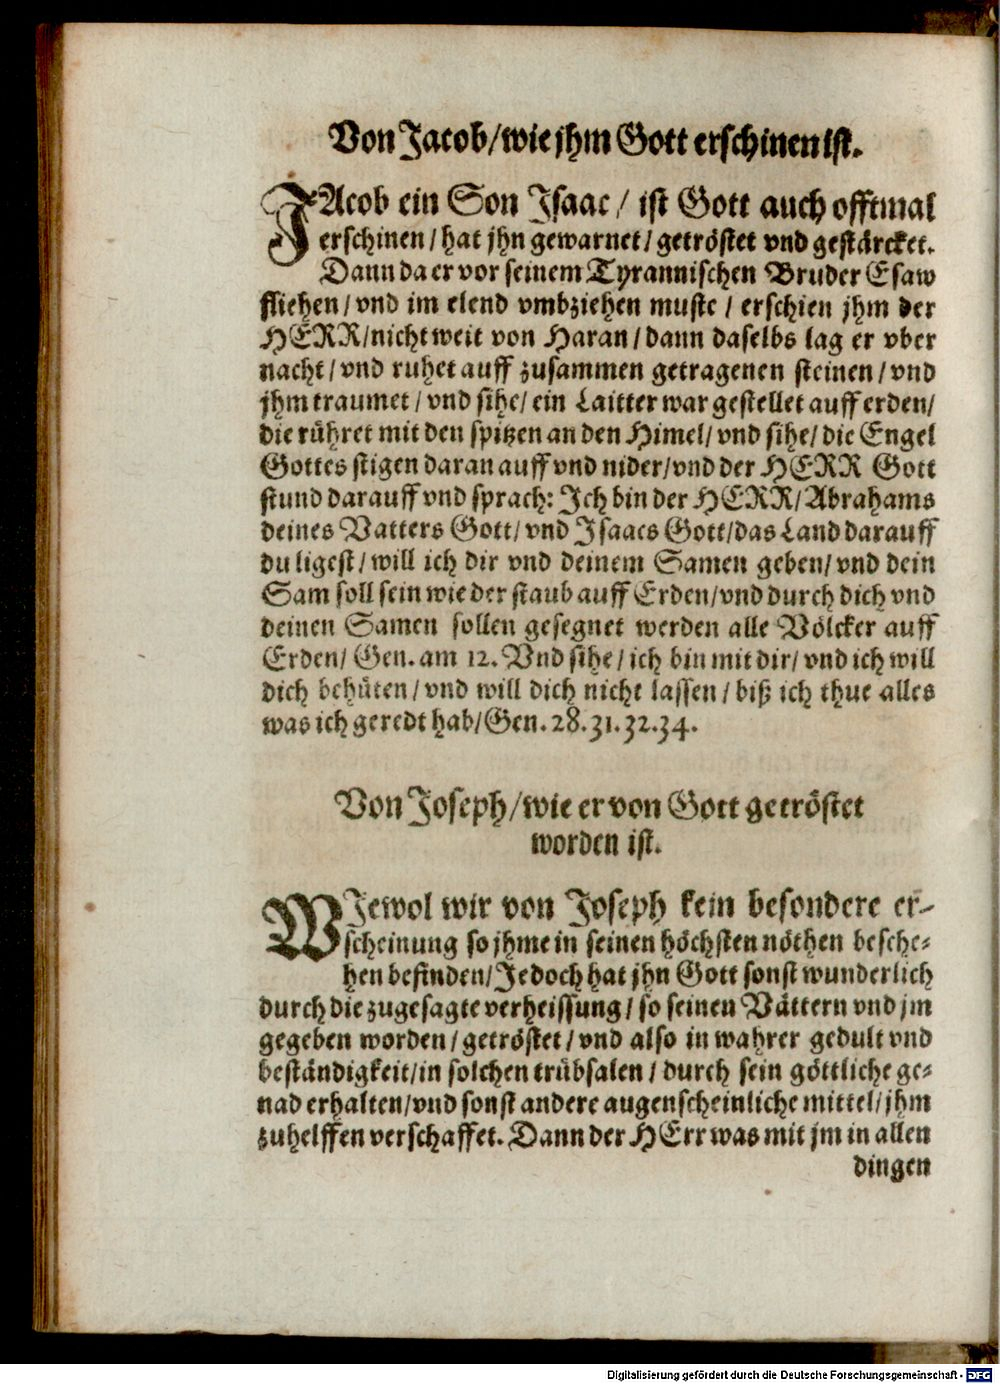 Von Jacob/wie jhm Gott erschinen ist.
JAcob ein Son Isaac/ ist Gott auch offtmal
erschinen/hat jhn gewarnet/getröstet vnd gestärcket.
Dann da er vor seinem Tyrannischen Bruder Esaw
fliehen/vnd im elend vmbziehen muste/ erschien jhm der
HERR/nicht weit von Haran/dann daselbs lag er vber
nacht/vnd ruhet auff zusammen getragenen steinen/vnd
jhm traumet/vnd sihe/ein Laitter war gestellet auff erden/
die rühret mit den spitzen an den Himel/vnd sihe/die Engel
Gottes stigen daran auff vnd nider/vnd der HERR Gott
stund darauff vnd sprach: Ich bin der HERR/Abrahams
deines Vatters Gott/vnd Isaacs Gott/das Land darauff
du ligest/will ich dir vnd deinem Samen geben/vnd dein
Sam soll sein wie der staub auff Erden/vnd durch dich vnd
deinen Samen sollen gesegnet werden alle Völcker auff
Erden/Gen. am 12. Vnd sihe/ich bin mit dir/vnd ich will
dich behüten/vnd will dich nicht lassen/biß ich thue alles
was ich geredt hab/Gen. 28. 31. 32. 34.
Von Joseph/wie er von Gott getröstet
worden ist.
WJewol wir von Joseph kein besondere er-
scheinung so jhme in seinen höchsten nöthen besche-
hen befinden/Jedoch hat jhn Gott sonst wunderlich
durch die zugesagte verheissung/so seinen Vättern vnd jm
gegeben worden/getröstet/vnd also in wahrer gedult vnd
beständigkeit/in solchen trübsalen/durch sein göttliche ge-
nad erhalten/vnd sonst andere augenscheinliche mittel/jhm
zuhelffen verschaffet. Dann der HErr was mit jm in allen
dingen
Digitalisierung gefördert durch die Deutsche Forschungsgemeinschaft - DFG